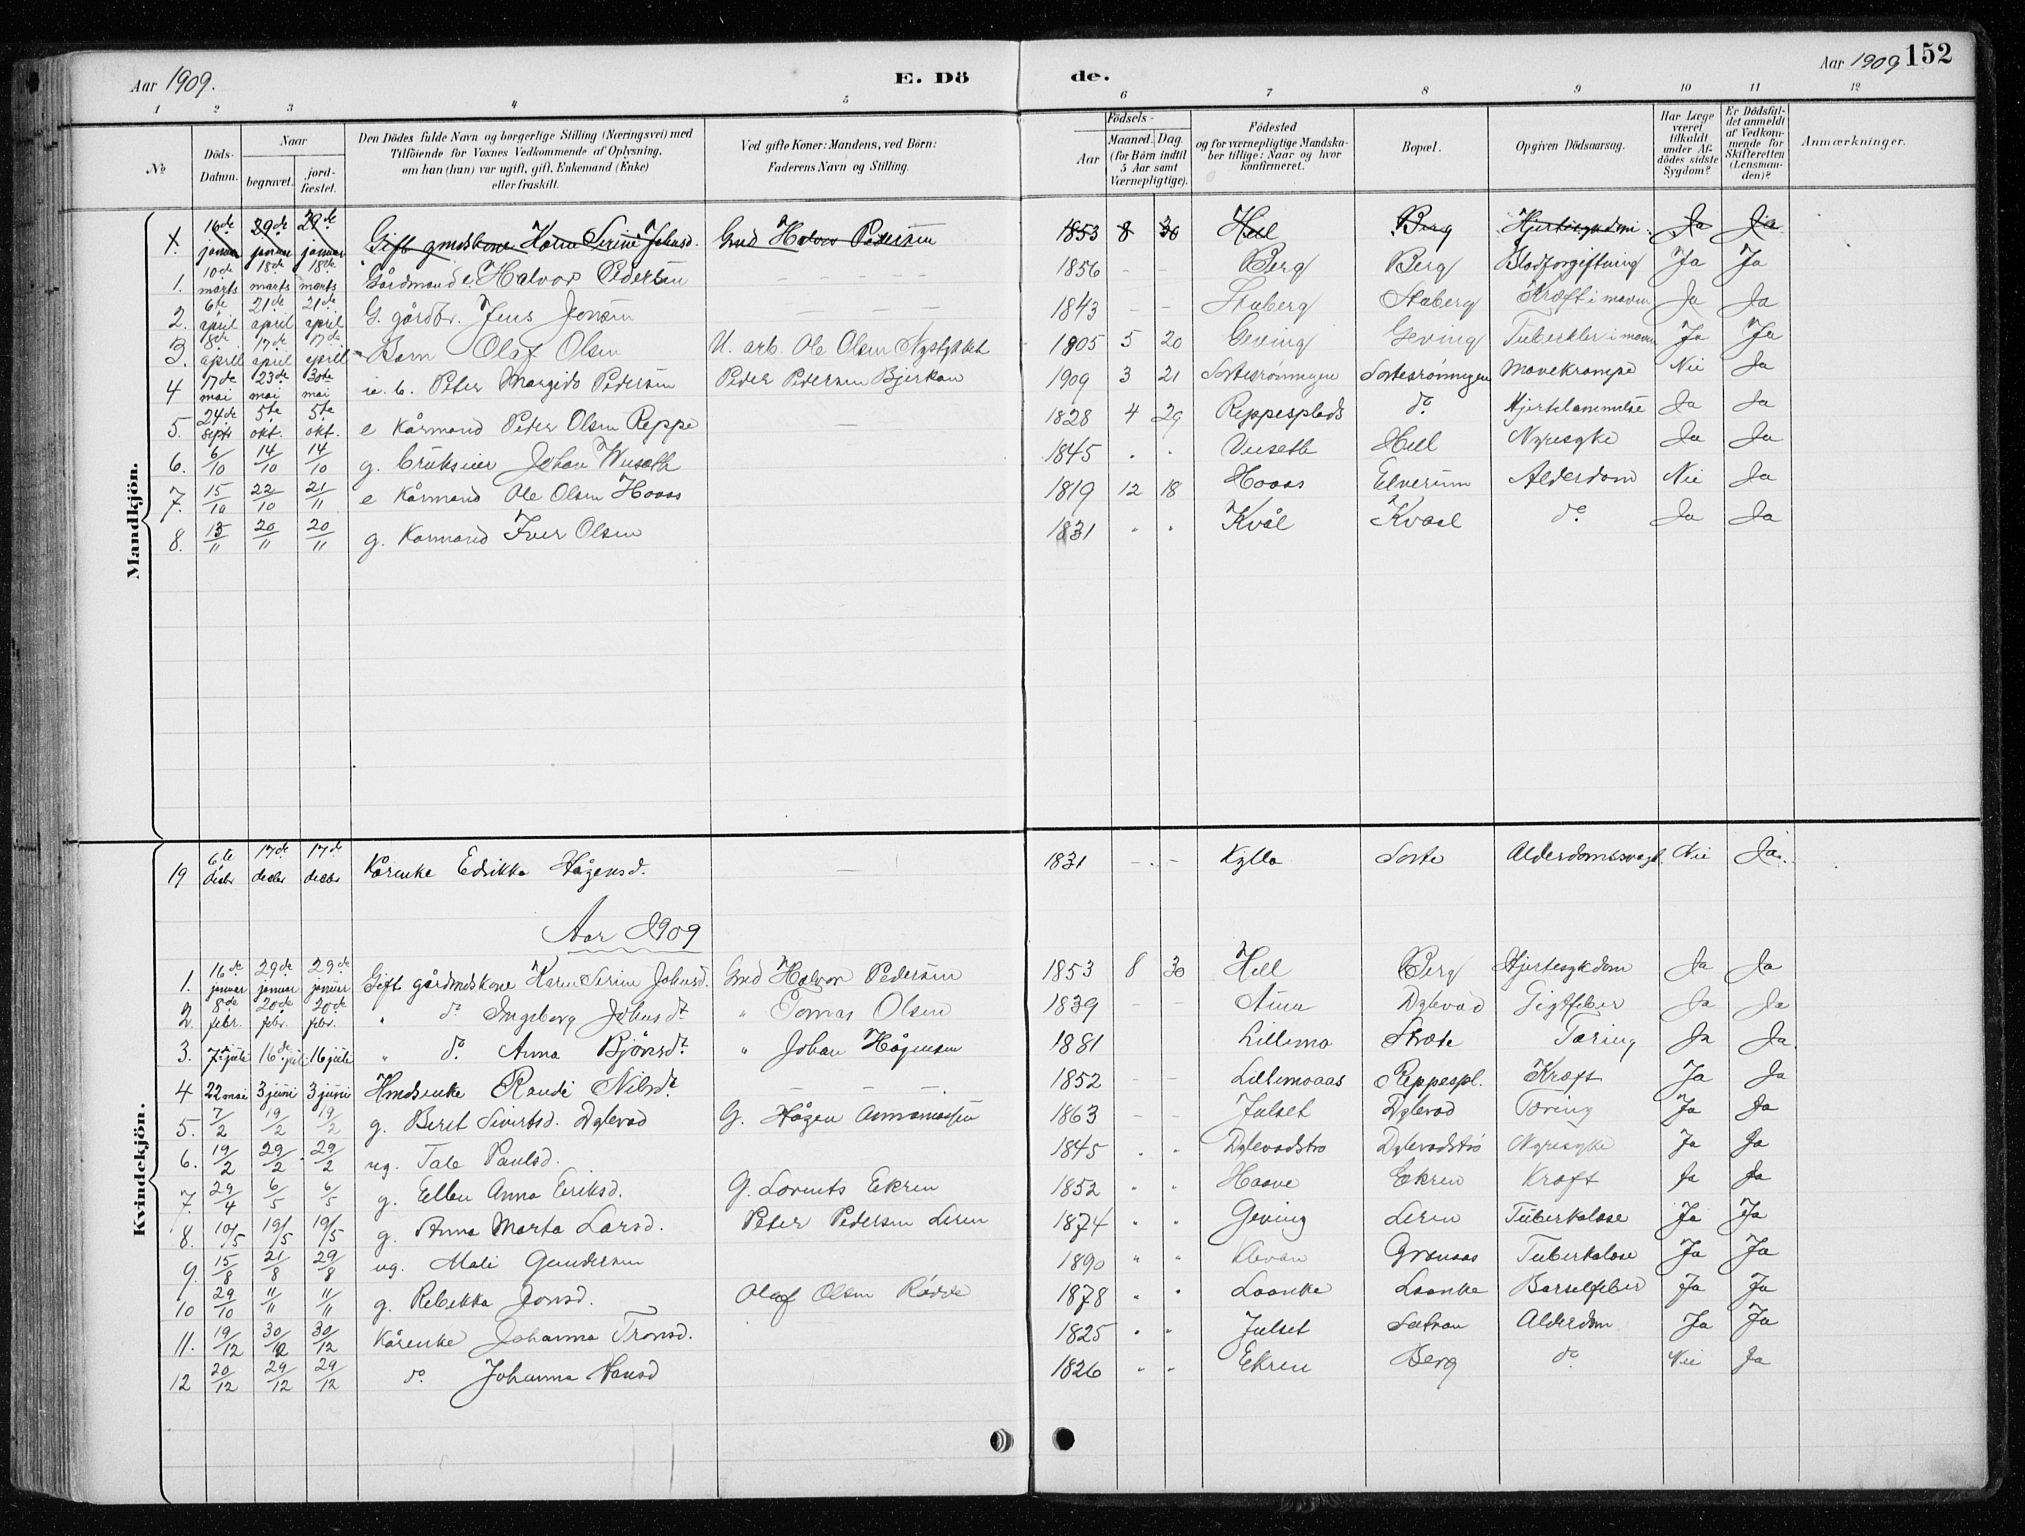 Aar 1909. E. Dö de. Aar 1909 152
1 2 3 4 5 6 7 8 9 10 11 12
№ Döds-Datum. Naar begravet. jord-fæstet. Den Dödes fulde Navn og borgerlige Stilling (Næringsvei) med Tilföiende for Voxnes Vedkommende af Oplysning, om han (hun) var ugift, gift, Enkemand (Enke) eller fraskilt. Ved gifte Koner: Mandens, ved Börn: Faderens Navn og Stilling. Födsels- Aar Maaned. Dag. (for Börn indtil 5 Aar samt Værnepligtige). Födested og for værnepligtige Mandska-ber tillige: Naar og hvor konfirmeret. Bopæl. Opgiven Dödsaarsag. Har Læge været tilkaldt under Af-dödes sidste Sygdom? Er Dödsfal-det anmeldt af Vedkom-mende for Skifteretten (Lensman-den)? Anmærkninger.
Mandkjön.
1. 16de januar 29de januar 29de januar Gift gmdskone Karen Serine Johnsd. Gmd Halvor Pedersen 1853 8 30 Hell Berg Hjertesygdom Ja Ja
1. 10de marts 18de marts 18de marts Gårdmand e. Halvor Pedersen — — — 1856 – – Berg Berg Blodforgiftning Ja Ja
2. 6te april 21de april 21de april G. gårdbr. Jens Jonsen — — — 1843 – – Staberg Staberg Kræft i maven Ja Ja
3. 8de april 17de april 17de april Barn Olaf Olsen U. arb. Ole Olsen Nystykket 1905 5 20 Geving Geving Tuberkler i maven Ja Ja
4 17de mai 23de mai 30te mai u. b. Peter Margido Pedersen Peder Pedersen Bjerkan 1909 3 21 Sortesrönningen Sortesrönningen Mavekrampe Nei Ja
5. 24de septr 5te okt. 5te okt. e Kårmand Peter Olsen Reppe — 1828 4 29 Reppesplads do Hjertelammelse Ja Ja
6. 6/10 14/10 14/10 g. bruksier Johan Wuseth 1845 " " Vuseth Hell Nyresyke Ja Ja
7. 15/10 22/10 21/11 e Kårmand Ole Olsen Hoaas 1819 12 18 Hoaas Elverum Alderdom Nei Ja
8. 13/11 20/11 20/11 g. Kårmand Iver Olsen 1831 " " Kvål Kvaal do Ja Ja
Kvindekjön.
19 6te decbr 17de decbr 17de decbr Kårenke Edrikka Hågensd. — 1831 – – Kylla Sorte Alderdomssvagh. Nei Ja
Aar 1909
1. 16de januar 29de januar 29de januar Gift gårdmdskone Karen Serine Johnsd. Gmd Halvor Pedersen 1853 8 30 Hell Berg Hjertesykdom Ja Ja
2. 8de febr. 20de febr. 20de febr. " do Ingeborg Johnsdt " Tomas Olsen 1839 – – Aune Dylevåd Gigtfeber Ja Ja
3. 7de juli 16de juli 16 juli " do. Anna Björnsdt. " Johan Hågensen 1881 Lillemo Stræte Tæring Ja Ja
4 22 mai 3 juni 3 juni Hmdsenke Randi Nilsdt. — — 1852 – – Lillemoaas Reppespl. Kræft Ja Ja
5. 7/2 19/2 19/2 g. Beret Sivertsd. Dylevad G. Hågen Annanassen 1863 – – Julset Dylevad Tæring Ja Ja
6. 19/2 29/2 29/2 ug. Tale Paulsd. 1845 " " Dylevadstrø Dylevadstrø Nyresyke Ja Ja
7. 29/4 6/5 6/5 g. Ellen Anna Eriksd. G. Lorents Ekren 1852 " " Haave Ekren Kræft Ja Ja
8. 10/5 19/5 19/5 g. Anna Marta Larsd. Peter Pedersen Leren 1874 " " Geving Leren Tuberkulose Ja Ja
9. 15/8 21/8 29/8 ug. Mali Gundersen 1890 " " Grønaas Tuberkulose Ja Ja
10 29/10 11/11 11/11 g. Rebekka Jonsd. Olaf Olsen Rådde 1878 " " Laanke Laanke Barselfeber Ja Ja
11. 19/12 30/12 30/12 Kårenke Johanna Tronsd. 1825 " " Julset Sætran Alderdom Ja Ja
12 20/12 29/12 29/12 do. Johanna Hansd 1826 " " Ekren Berg do. Nei Ja